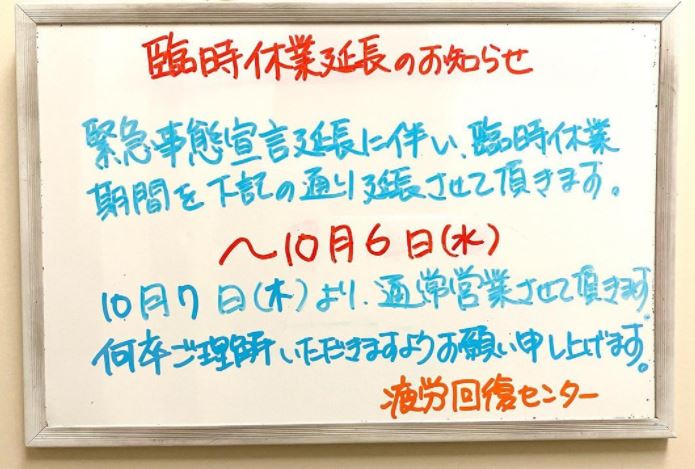 臨時休業延長のお知らせ
緊急事態宣言延長に伴い、臨時休業
期間を下記の通り延長させて頂きます。
〜10月6日(水)
10月7日(木)より、通常営業させて頂きます。
何卒ご理解いただきますようお願い申し上げます。
疲労回復センター